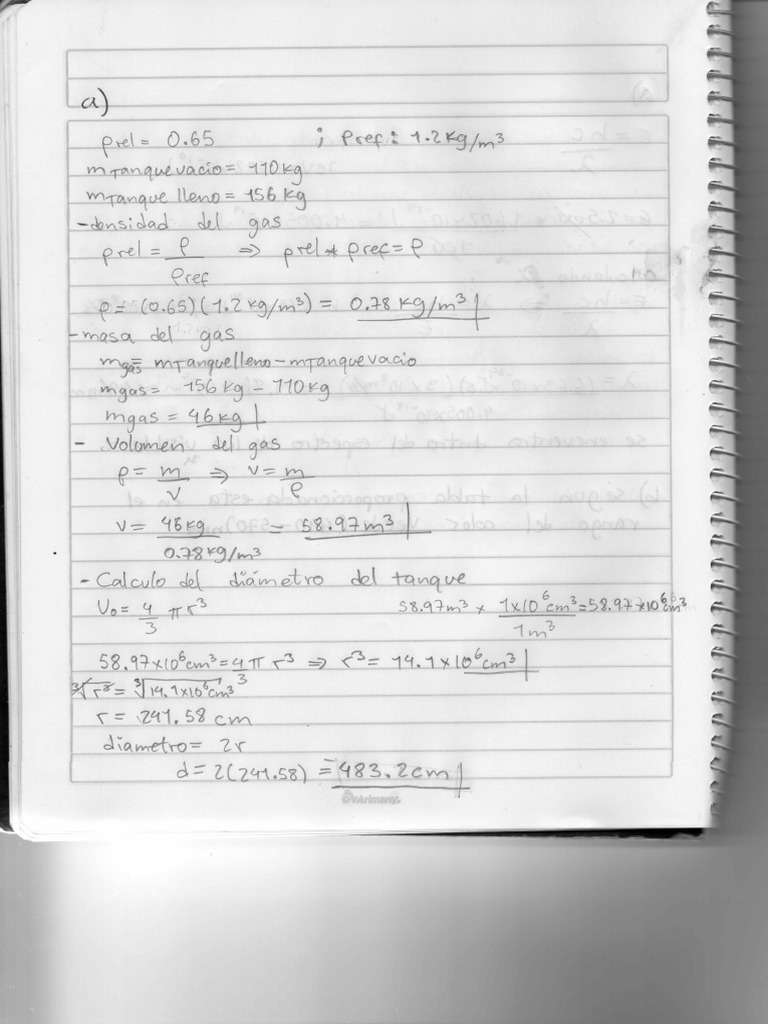 a)
ρrel = 0.65 ; ρref: 1.2 Kg/m³
mTanque vacio = 110 kg
mTanque lleno = 156 kg
- densidad del gas
ρrel = ρ/ρref ⇒ ρrel * ρref = ρ
ρ = (0.65)(1.2 kg/m³) = 0.78 kg/m³
- masa del gas
mgas = mTanque lleno - mTanque vacio
mgas = 156 kg - 110 kg
mgas = 46 kg
- Volumen del gas
ρ = m/V ⇒ V = m/ρ
V = 46 kg/0.78 kg/m³ = 58.97 m³
- Calculo del diámetro del tanque
Vo = 4/3 π r³ 58.97 m³ × 1×10⁶ cm³/1 m³ = 58.97 × 10⁶ cm³
58.97 × 10⁶ cm³ = 4π/3 r³ ⇒ r³ = 14.1 × 10⁶ cm³
∛r³ = ∛14.1 × 10⁶ cm³
r = 241.58 cm
diametro = 2r
d = 2(241.58) = 483.2 cm